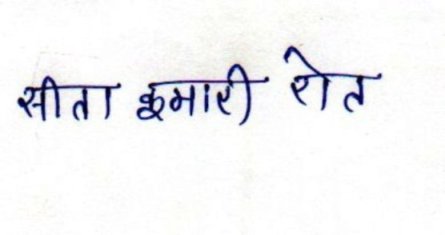 सीता कुमारी रोत